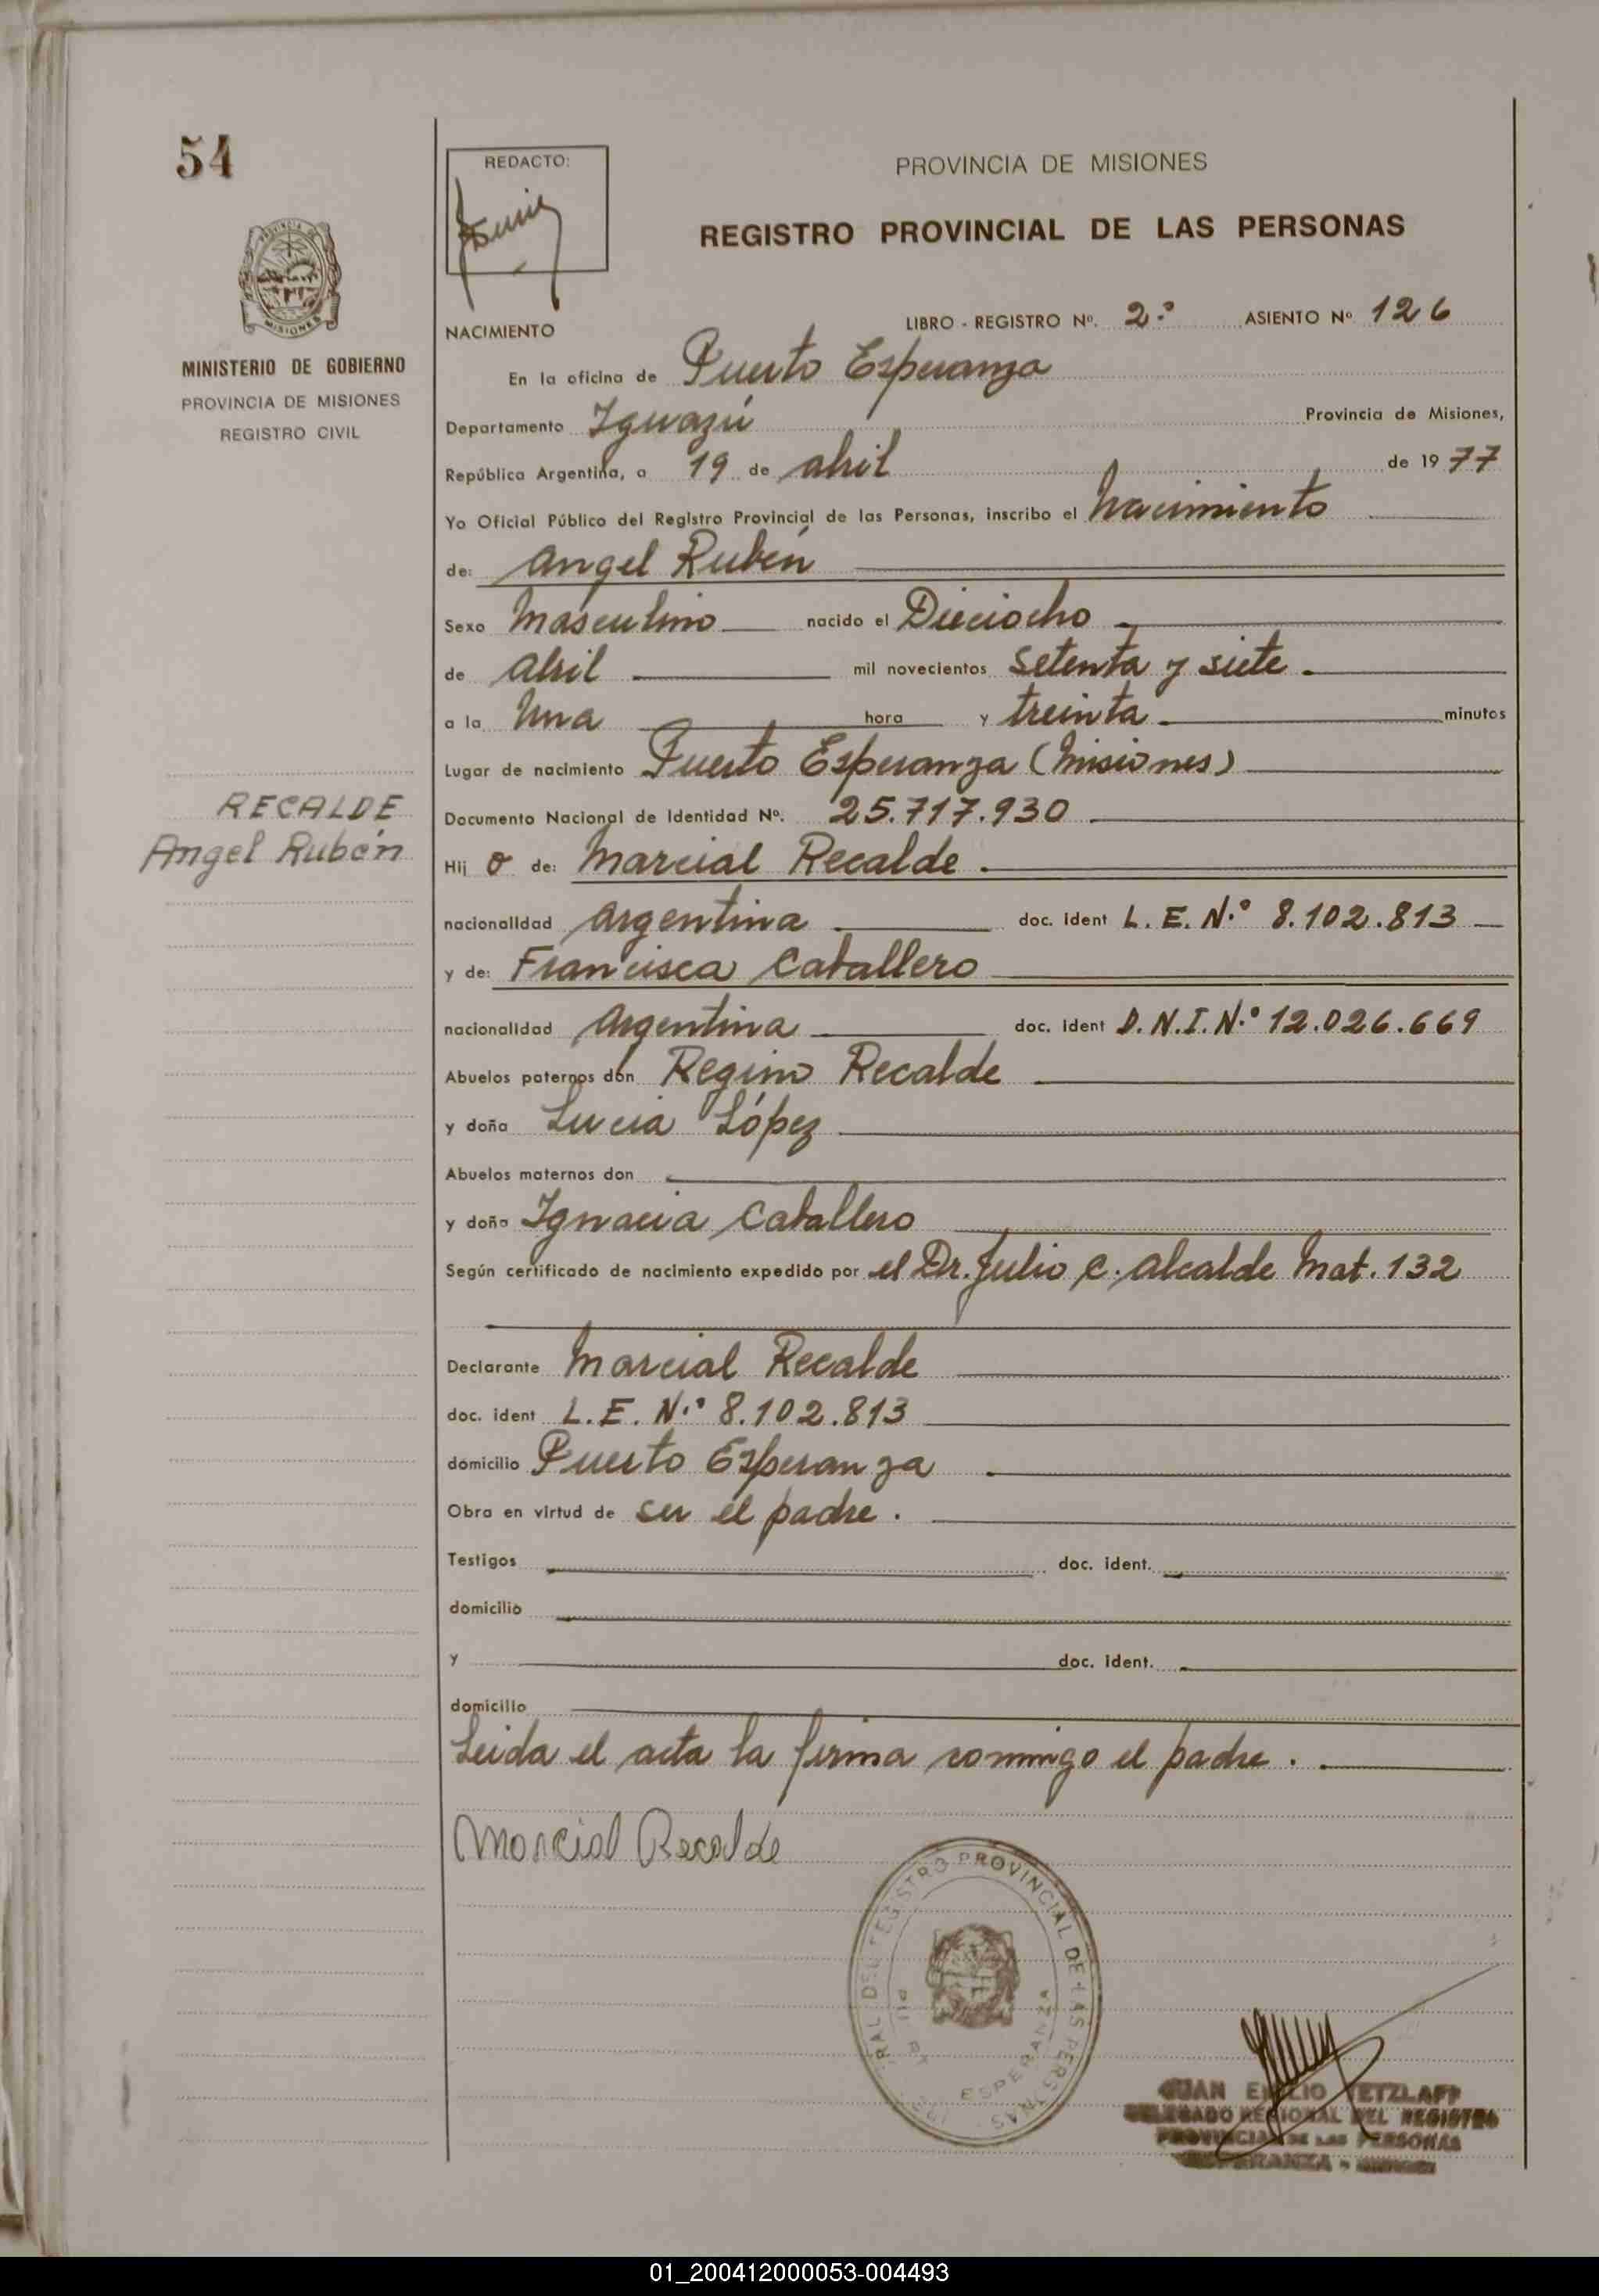 54
REDACTO:
PROVINCIA DE MISIONES
REGISTRO PROVINCIAL DE LAS PERSONAS
MISIONES
MINISTERIO DE GOBIERNO
PROVINCIA DE MISIONES
REGISTRO CIVIL
NACIMIENTO
LIBRO - REGISTRO Nº. 2º ASIENTO Nº 126
En la oficina de Puerto Esperanza
Departamento Iguazú Provincia de Misiones,
República Argentina, a 19 de abril de 1977
Yo Oficial Público del Registro Provincial de las Personas, inscribo el Nacimiento
de: Angel Rubén
Sexo Masculino nacido el Dieciocho
de Abril mil novecientos setenta y siete
a la Una hora y treinta minutos
Lugar de nacimiento Puerto Esperanza (Misiones)
RECALDE
Angel Rubén
Documento Nacional de Identidad Nº. 25.717.930
Hij o de: Marcial Recalde
nacionalidad Argentina doc. ident L. E. N.º 8.102.813
y de: Francisca Caballero
nacionalidad Argentina doc. ident D.N.I. N.º 12.026.669
Abuelos paternos don Regino Recalde
y doña Lucia López
Abuelos maternos don
y doña Ignacia Caballero
Según certificado de nacimiento expedido por el Dr. Julio C. Alcalde Mat. 132
Declarante Marcial Recalde
doc. ident L. E. N.º 8.102.813
domicilio Puerto Esperanza
Obra en virtud de ser el padre.
Testigos doc. ident.
domicilio
y doc. ident.
domicilio
Leida el acta la firma conmigo el padre.
Marcial Recalde
REGISTRO PROVINCIAL DE LAS PERSONAS
ESPERANZA
JUAN EMILIO TETZLAFF
DELEGADO REGIONAL DEL REGISTRO
PROVINCIAL DE LAS PERSONAS
ESPERANZA - MISIONES
01_200412000053-004493